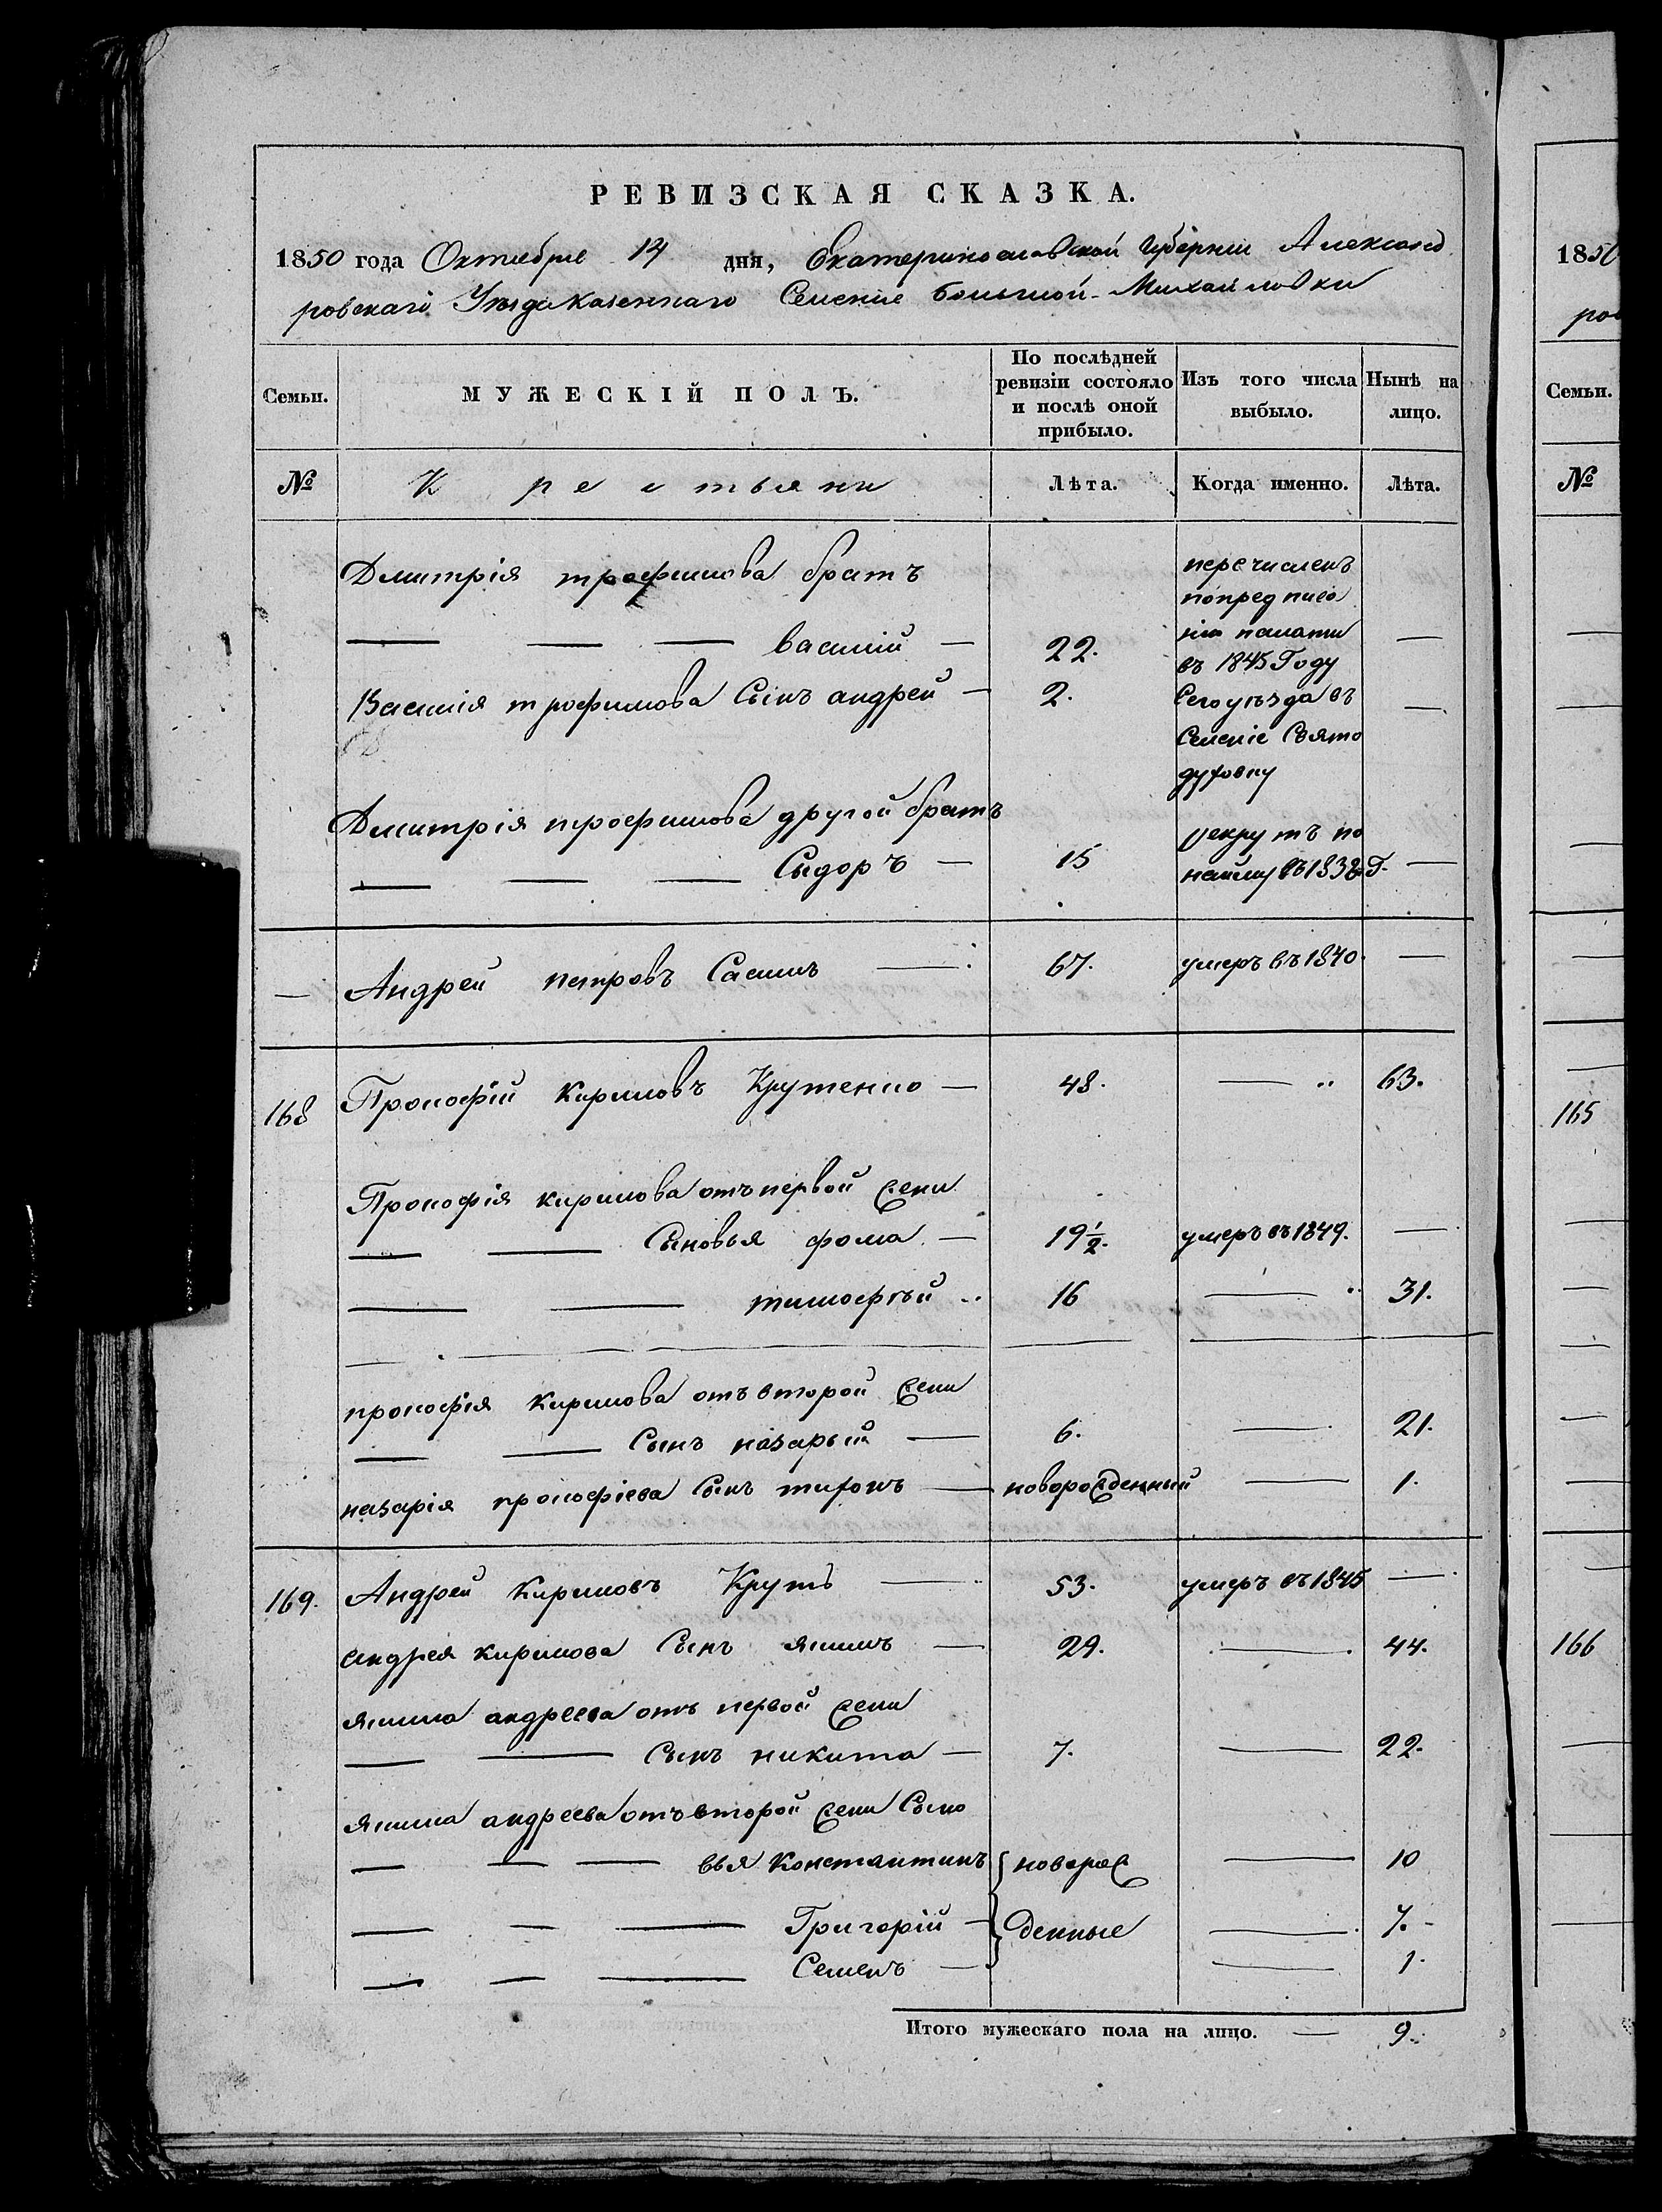 РЕВИЗСКАЯ СКАЗКА.
1850 года Октября 14 дня, Екатеринославской Губерніи Александ
ровскаго Уѣзда казеннаго Селенія Большой-Михайловки
Семьи.
МУЖЕСКІЙ ПОЛЪ.
По послѣдней ревизіи состояло и послѣ оной прибыло.
Изъ того числа выбыло.
Нынѣ на лицо.
№ Крестьяни Лѣта. Когда именно. Лѣта.
Дмитрія трофимова братъ
перечисленъ
попредписа
нію палаты
въ 1845 Году
Сего уѣзда въ
Селеніе Свято
духовку
— — — Василій — 22. —
Василія трофимова Сынъ андрей — 2. —
Дмитрія трофимова другой братъ
— — — Сыдоръ — 15
рекрутъ по
найму въ 1838 Г. —
— Андрей петровъ — 67. умеръ въ 1840. —
168 Прокофій кириловъ Крутенко — 48. — 63.
Прокофія кирилова отъ первой жены
— — Сыновья фома — 19 1/2. умеръ въ 1849. —
— — тимофѣй 16 — 31.
прокофія кирилова отъ второй жены
— — Сынъ назарый — 6. — 21.
назарія прокофіева Сынъ тихонъ — новорожденный — 1.
169. Андрей Кириловъ Круть — 53. умеръ въ 1845 —
андрея кирилова Сынъ якимъ — 29. — 44.
якима андреева отъ первой жены
— — Сынъ никита — 7. — 22.
якима андреева отъ второй жены Сыно
— — — вья Константинъ новорож — 10
— — — Григорій — денные — 7.
— — — Семенъ — — 1.
Итого мужескаго пола на лицо. — 9.
1850
ров
Семьи.
№
165
166